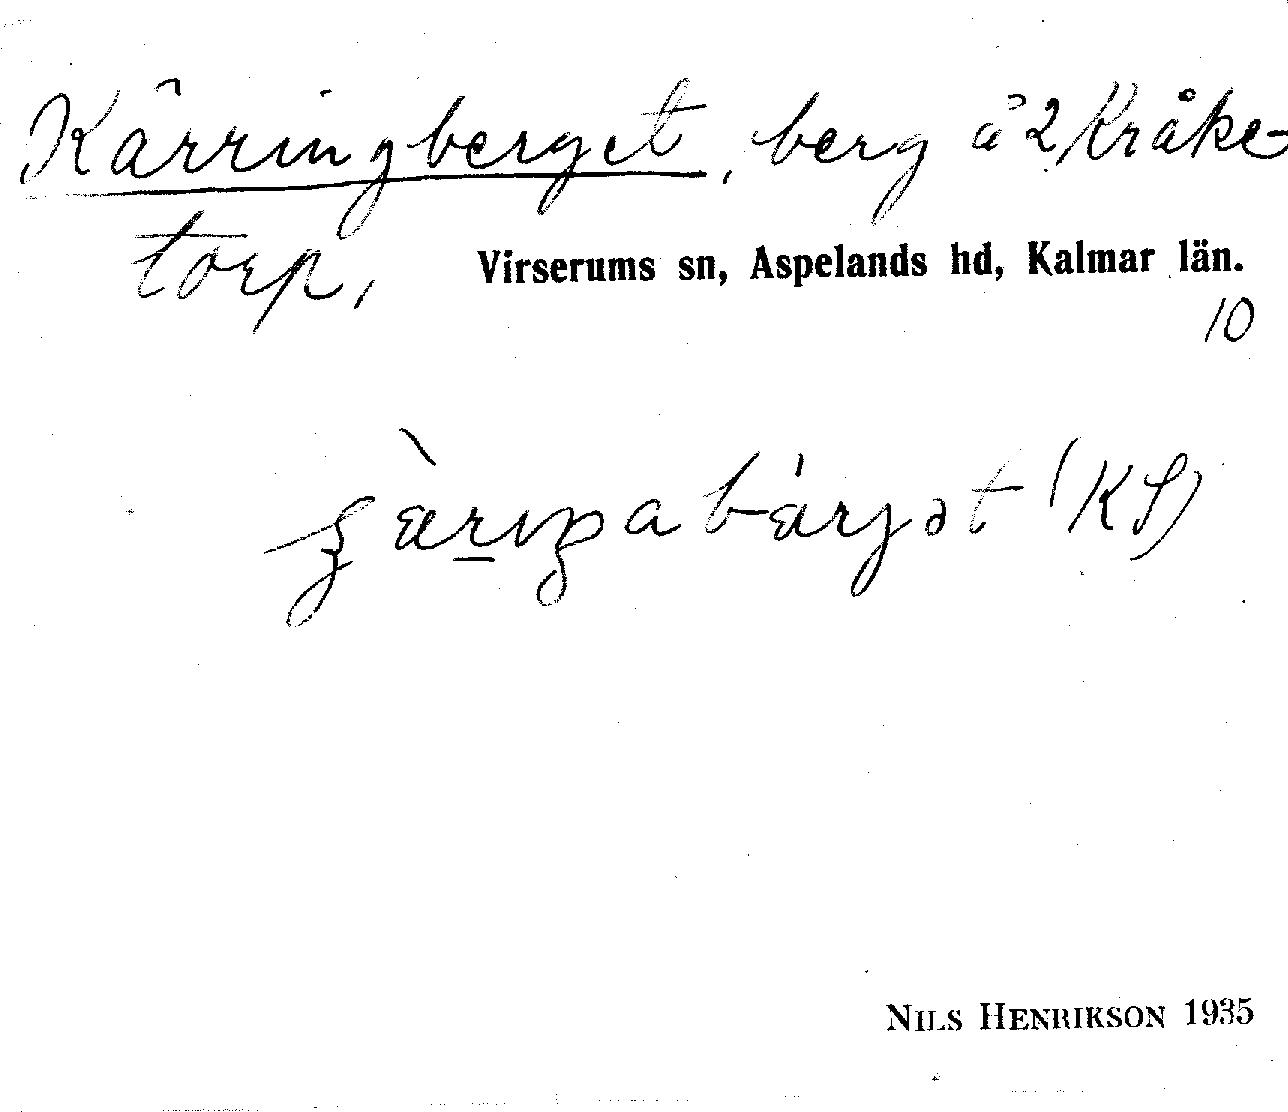 Kärringberget, berg å 2 Kråke-
torp, Virserums sn, Aspelands hd, Kalmar län.
10
(KS)
NILS HENRIKSON 1935